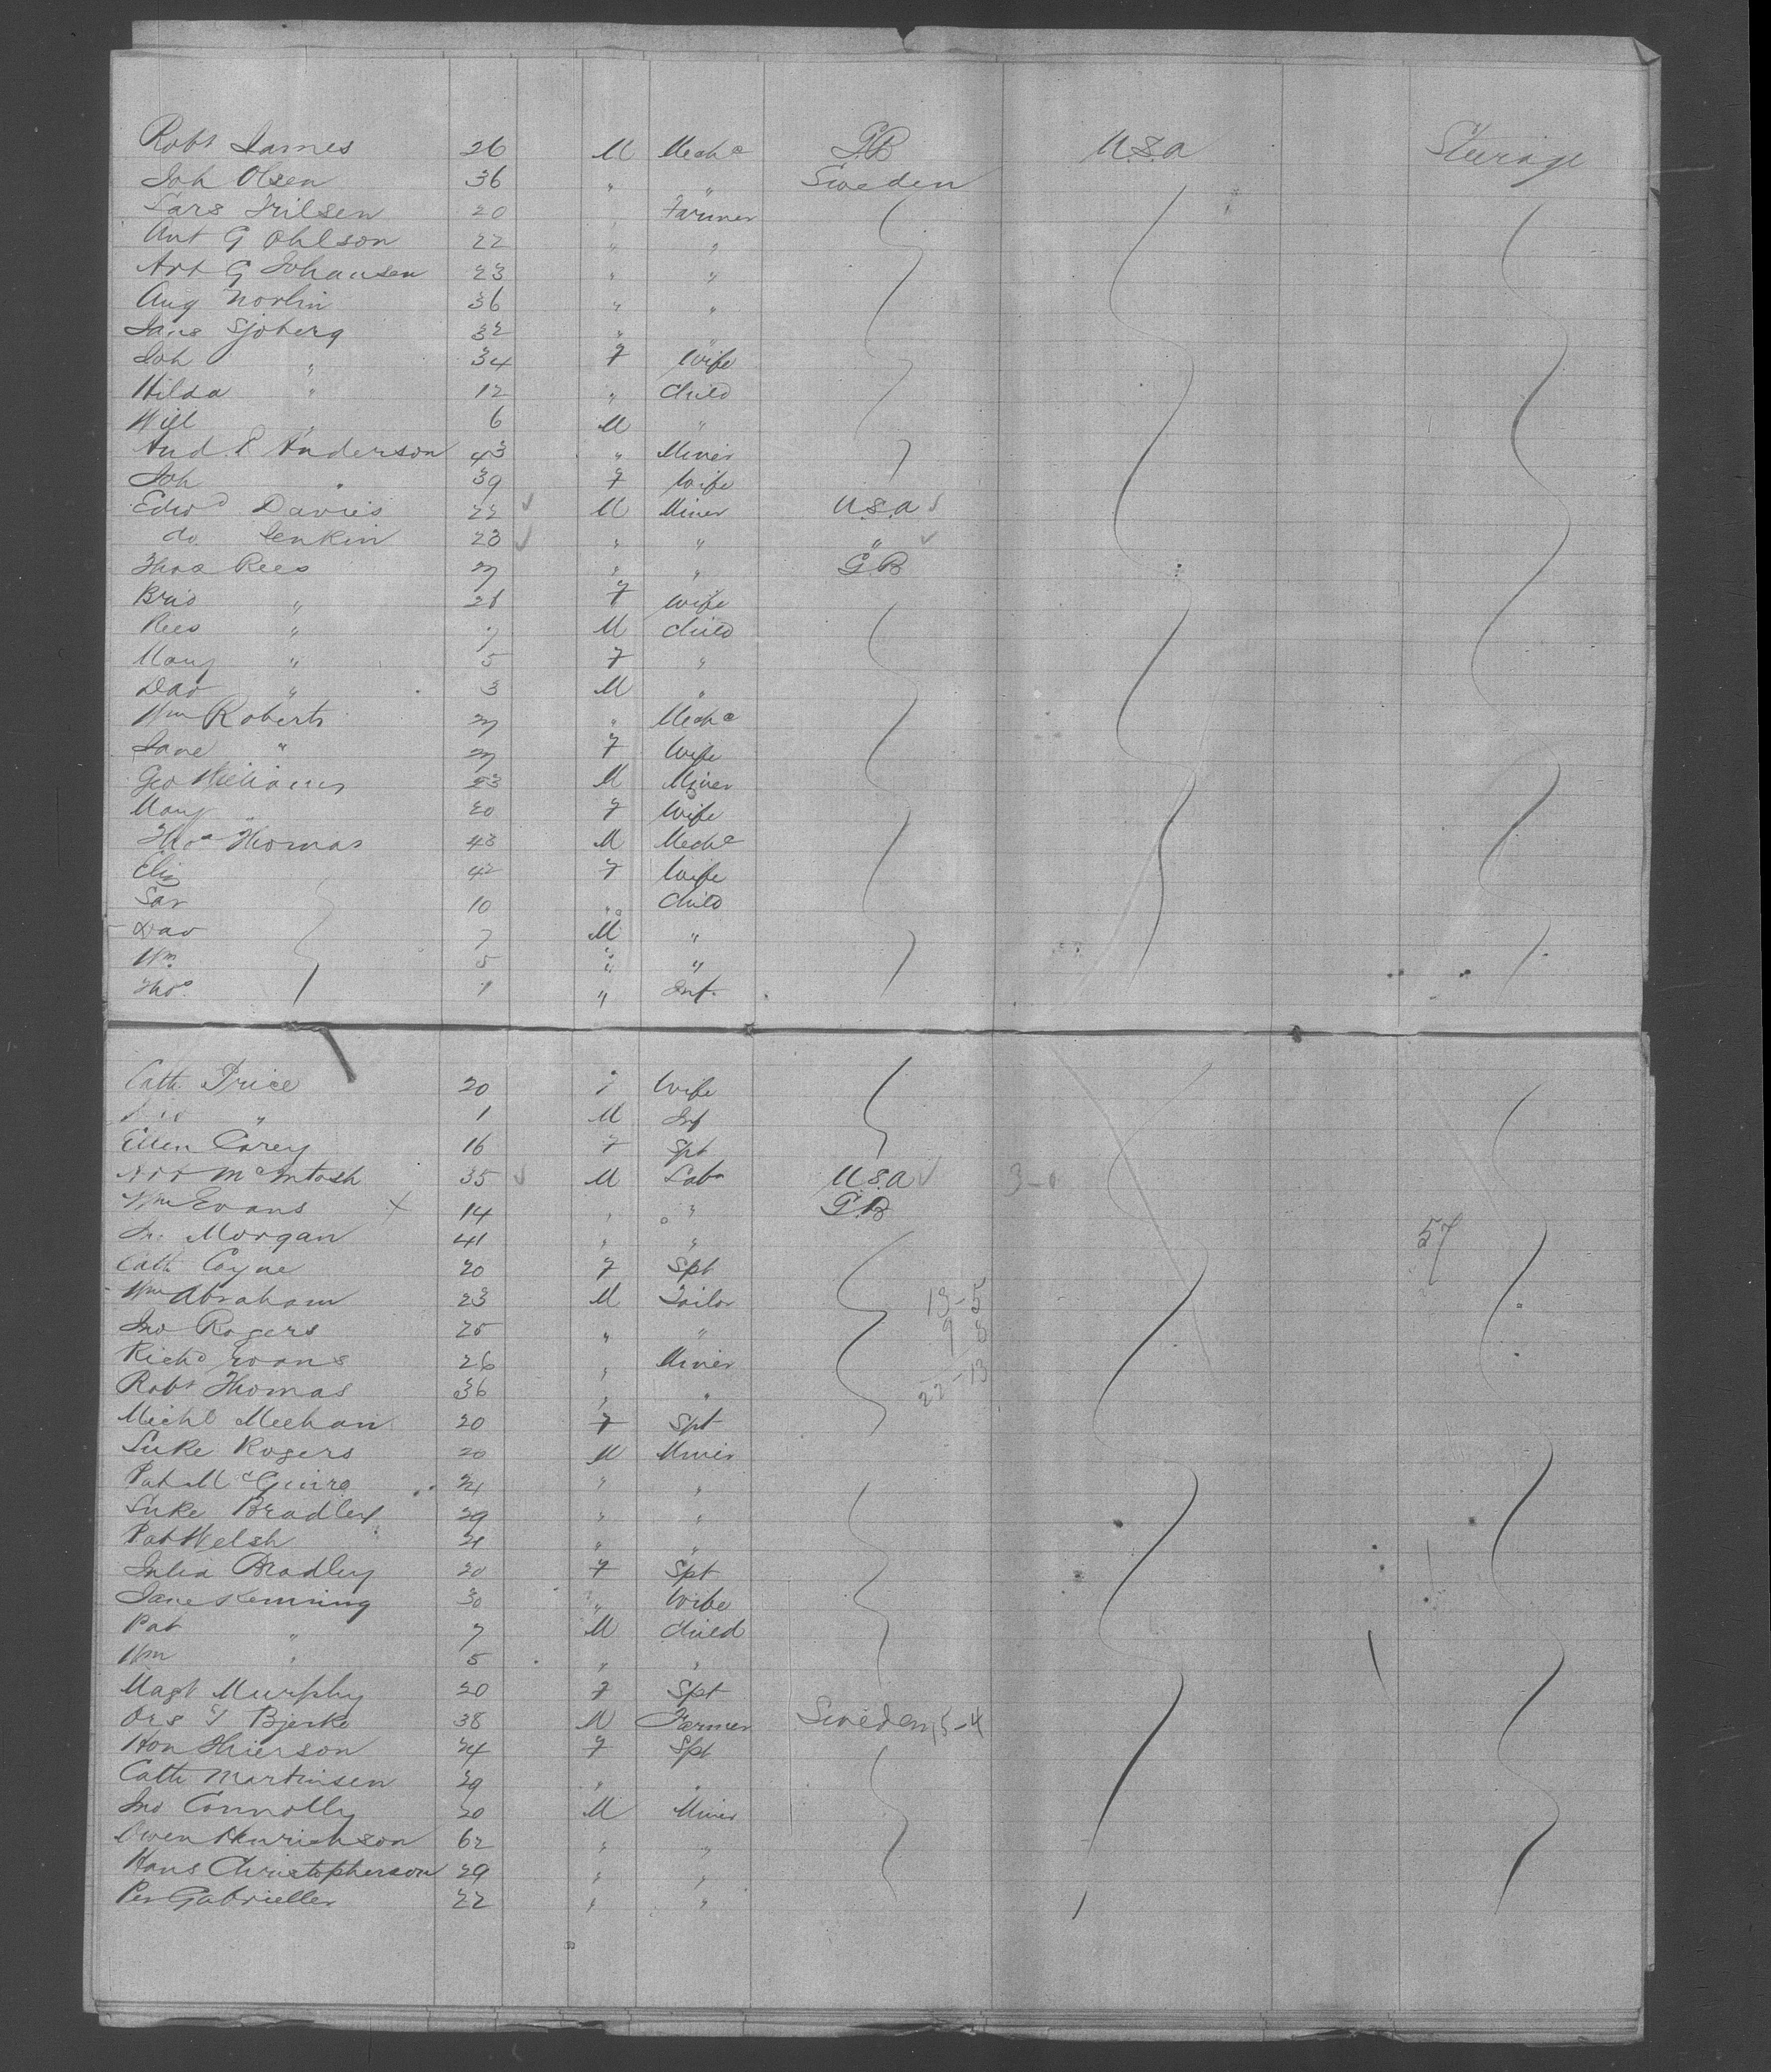 Robt James 26 M Mech G.B U.S.a Steerage
Joh Olsen 36 " " Sweden
Lars Nilsen 20 " Farmer
Ant G Ohlson 22 " "
Art G Johansen 23 " "
Aug Norlin 36 " "
Jans Sjoberg 32 " "
Joh " 34 F Wife
Hilda " 12 " Child
Will " 6 M "
And. P Anderson 43 " Miner
Joh " 39 F Wife
Edwd Davies 22 M Miner U.S.a
do. Jenkin 23 " " "
Thos Rees 27 " " G.B
" 28 F Wife
Rees " 7 M Child
Mary " 5 F "
Dav " 3 M "
Wm Roberts 27 " Mech
Jane " 27 F Wife
Geo Williams 23 M Miner
Mary " 20 F Wife
Thos Thomas 43 M Mech
Eliz 42 F Wife
Sar 10 " Child
Dav 7 M "
Wm. 5 " "
Thos. 1 " Inf.
Cath Price 20 Wife
" 1 M Inf
Ellen Carey 16 F Spt
McIntosh 35 M Labr U.S.a 3-
Wm Evans x 14 " " G.B
Morgan 41 " " 57
Cath Coyne 20 F Spt
Wm Abraham 23 M Tailor 13-5
Jno Rogers 25 " " 9 8
Richd Evans 26 " Miner 22-13
Robt Thomas 36 " "
Michl Meehan 20 F Spt
Luke Rogers 20 M Miner
Pat McGuire 21 " "
Luke Bradley 29 " "
Pat Welsh 21 " "
Julia Bradley 20 F Spt
Jane Kenning 30 " Wife
Pat " 7 M Child
Wm " 5 " "
Magt Murphy 20 F Spt
Bjerke 38 M Farmer Sweden 5-4
Hon 24 F Spt
Cath Martinsen 29 " "
Jno Connolly 20 M Miner
Owen Henrichson 62 " "
Hans Christopherson 29 " "
Per Gabrieller 22 " "